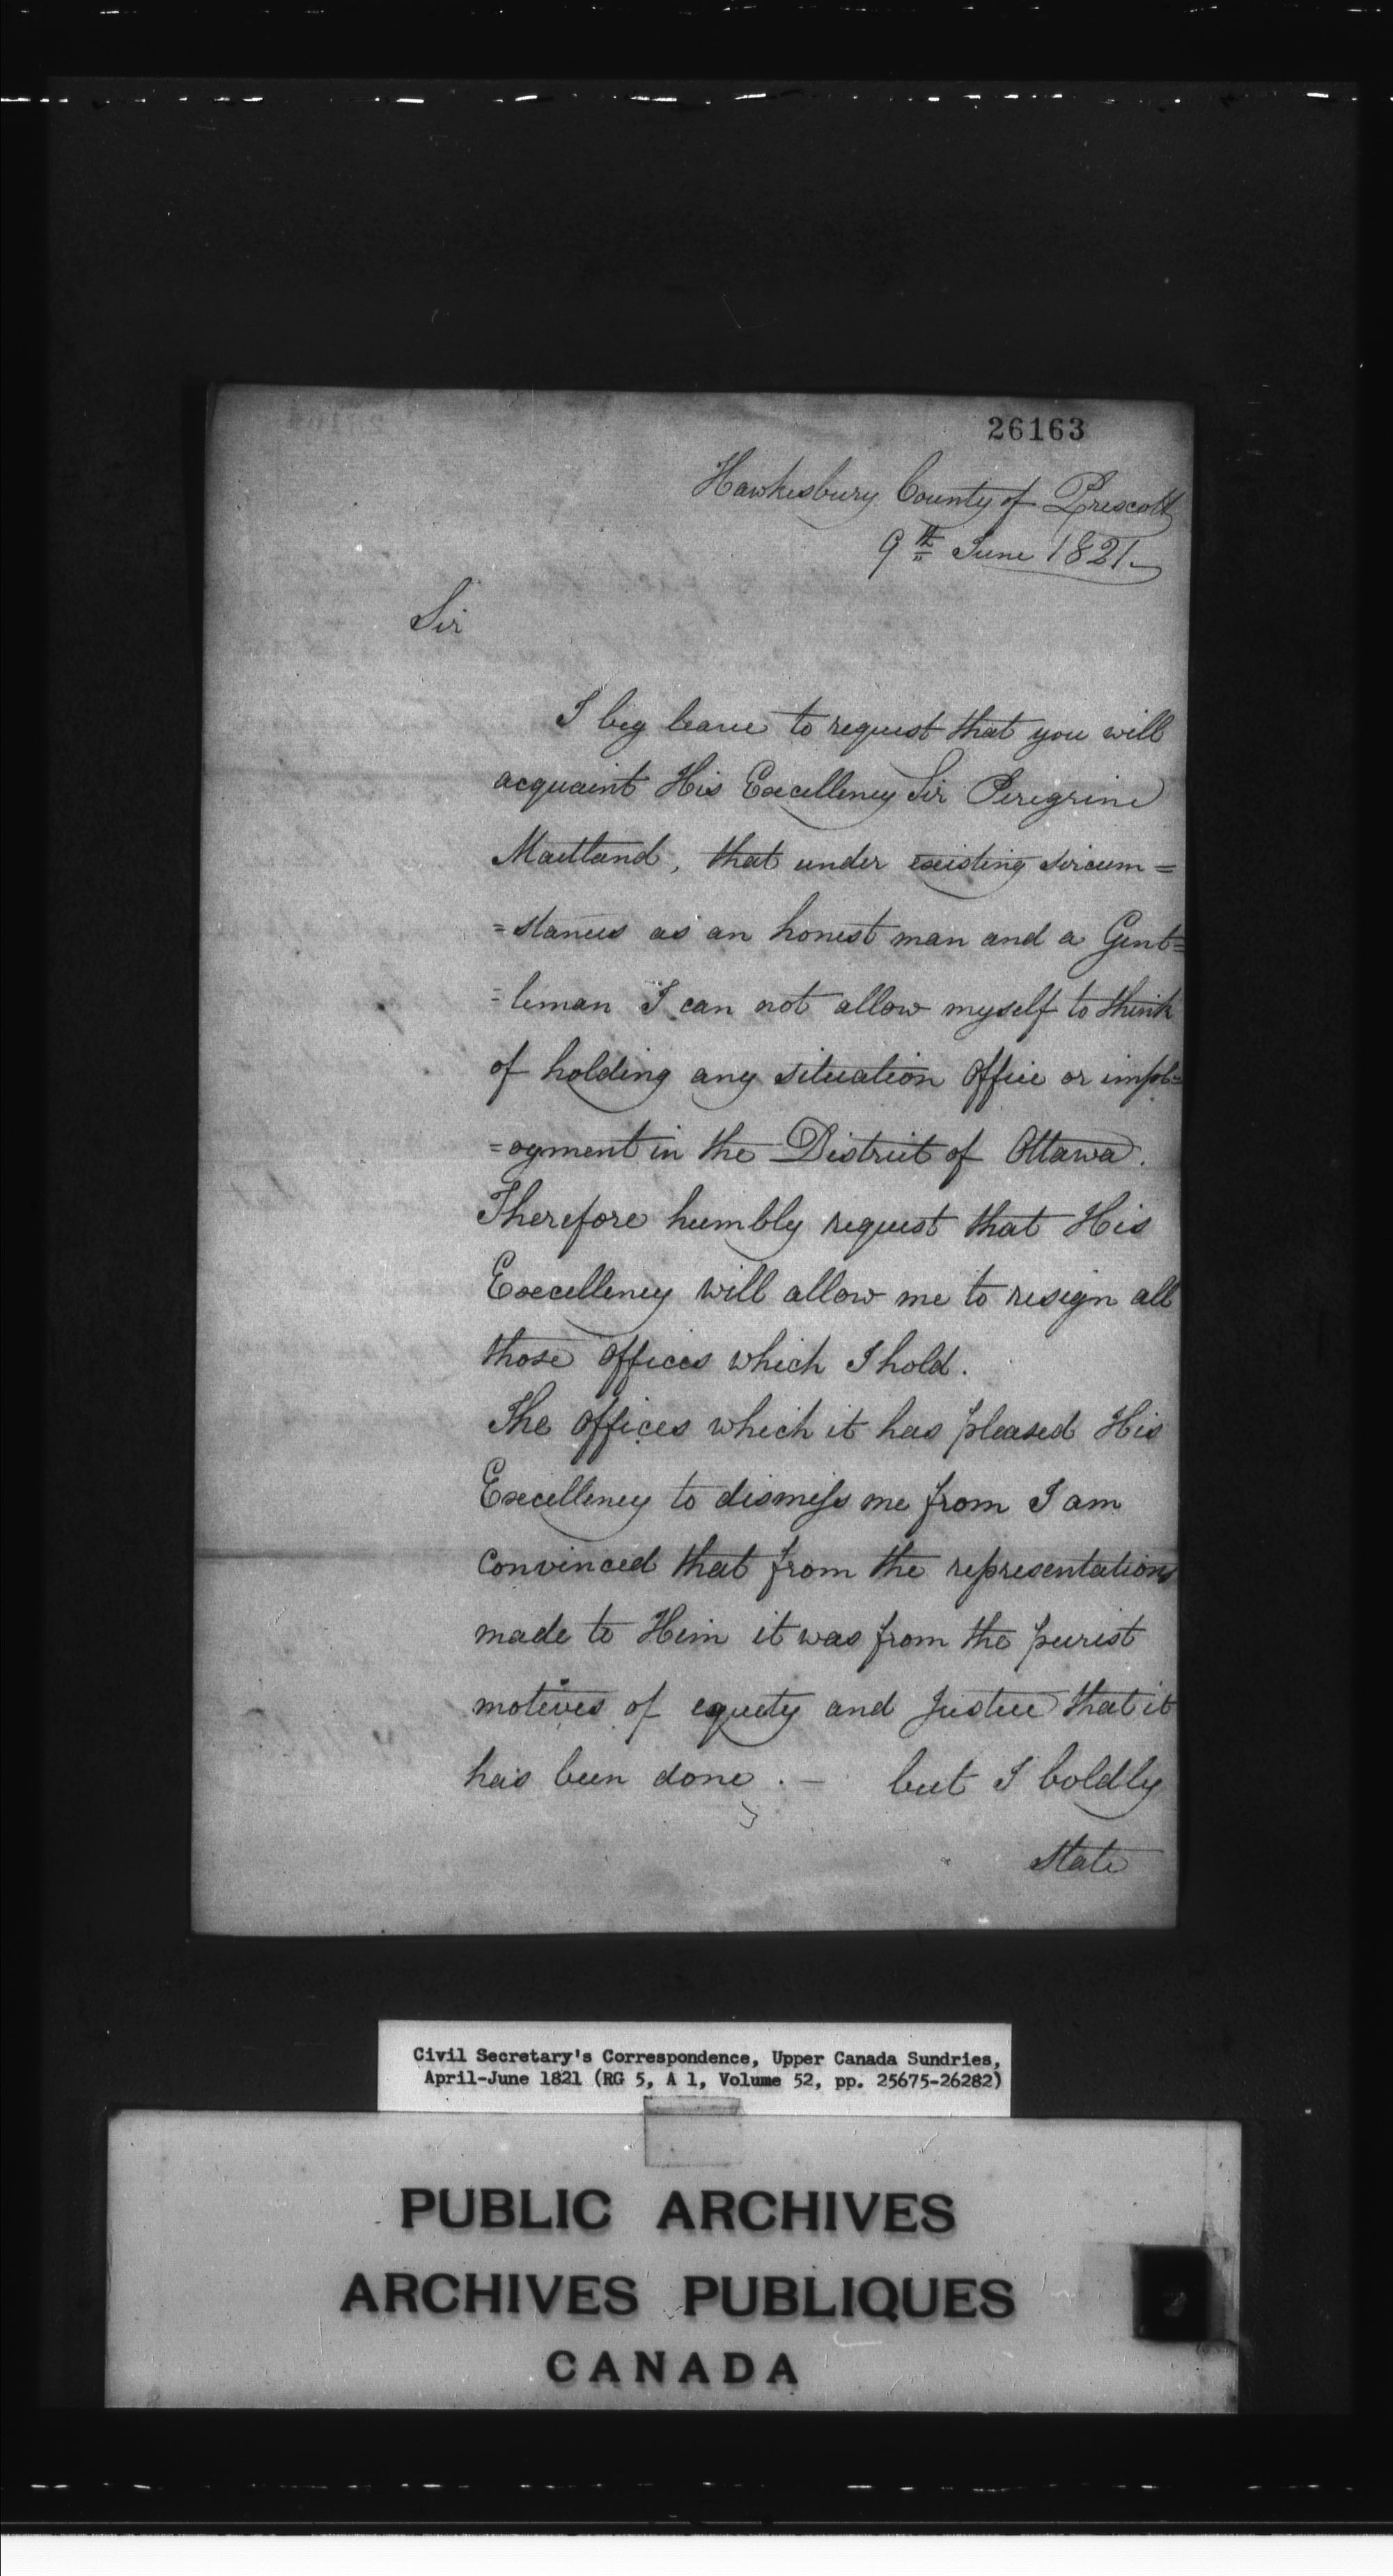 26163
Hawkesbury County of Prescott
9th June 1821
Sir
I beg leave to request that you will
acquaint His Excellency Sir Peregrine
Maitland, that under existing sircum=
=stances as an honest man and a Gent=
=leman I can not allow myself to think
of holding any situation Office or impl=
=oyment in the District of Ottawa.
Therefore humbly request that His
Excellency will allow me to resign all
those Offices which I hold.
The Offices which it has pleased His
Excellency to dismiss me from I am
convinced that from the representations
made to Him it was from the purist
motives of equety and Justice that it
has been done. — but I boldly
State
Civil Secretary's Correspondence, Upper Canada Sundries,
April-June 1821 (RG 5, A 1, Volume 52, pp. 25675-26282)
PUBLIC ARCHIVES
ARCHIVES PUBLIQUES
CANADA